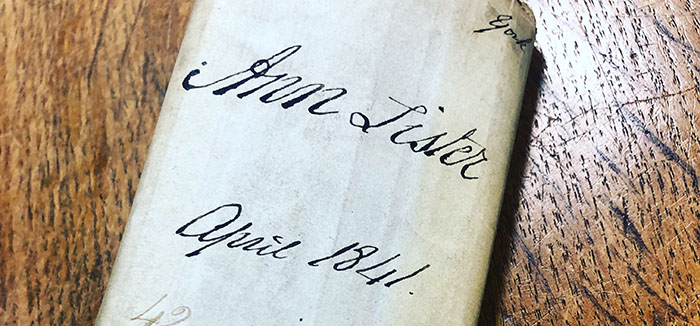 York
Ann Lister
April 1841.
42